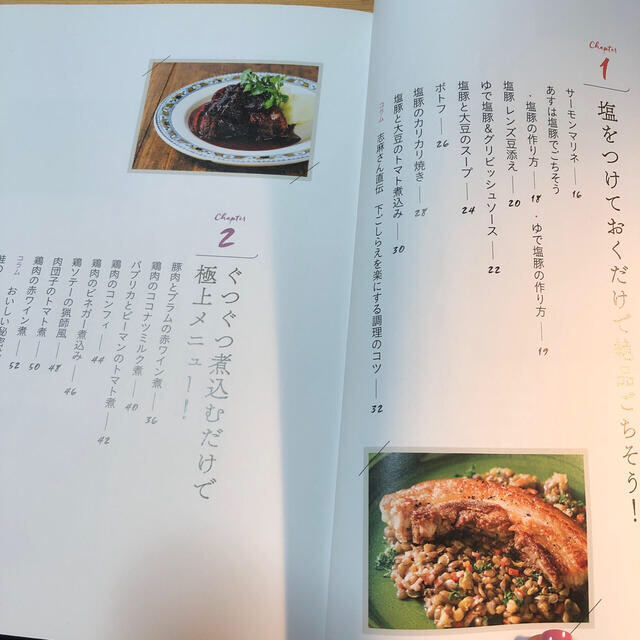 Chapter
1
塩をつけておくだけで絶品ごちそう!
サーモンマリネ — 16
あすは塩豚でごちそう
・塩豚の作り方 — 18 ・ゆで塩豚の作り方 — 19
塩豚 レンズ豆添え — 20
ゆで塩豚&グリビッシュソース — 22
塩豚と大豆のスープ — 24
ポトフ — 26
塩豚のカリカリ焼き — 28
塩豚と大豆のトマト煮込み — 30
コラム 志麻さん直伝 下ごしらえを楽にする調理のコツ — 32
Chapter
2
ぐつぐつ煮込むだけで
極上メニュー!
豚肉とプラムの赤ワイン煮 — 36
鶏肉のココナツミルク煮 — 40
パプリカとピーマンのトマト煮 — 42
鶏肉のコンフィ — 44
鶏肉のビネガー煮込み — 46
鶏ソテーの猟師風 — 48
肉団子のトマト煮 — 50
鶏肉の赤ワイン煮 — 52
コラム おいしい秘密